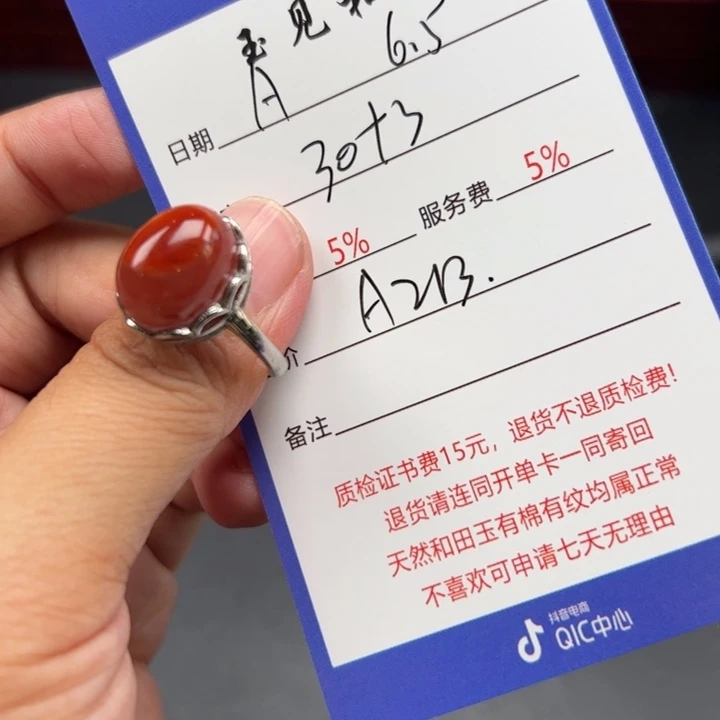 玉见和
A 6.5
日期
30+3
5% 服务费 5%
价 A2B.
备注
质检证书费15元，退货不退质检费!
退货请连同开单卡一同寄回
天然和田玉有棉有纹均属正常
不喜欢可申请七天无理由
抖音电商
QIC中心